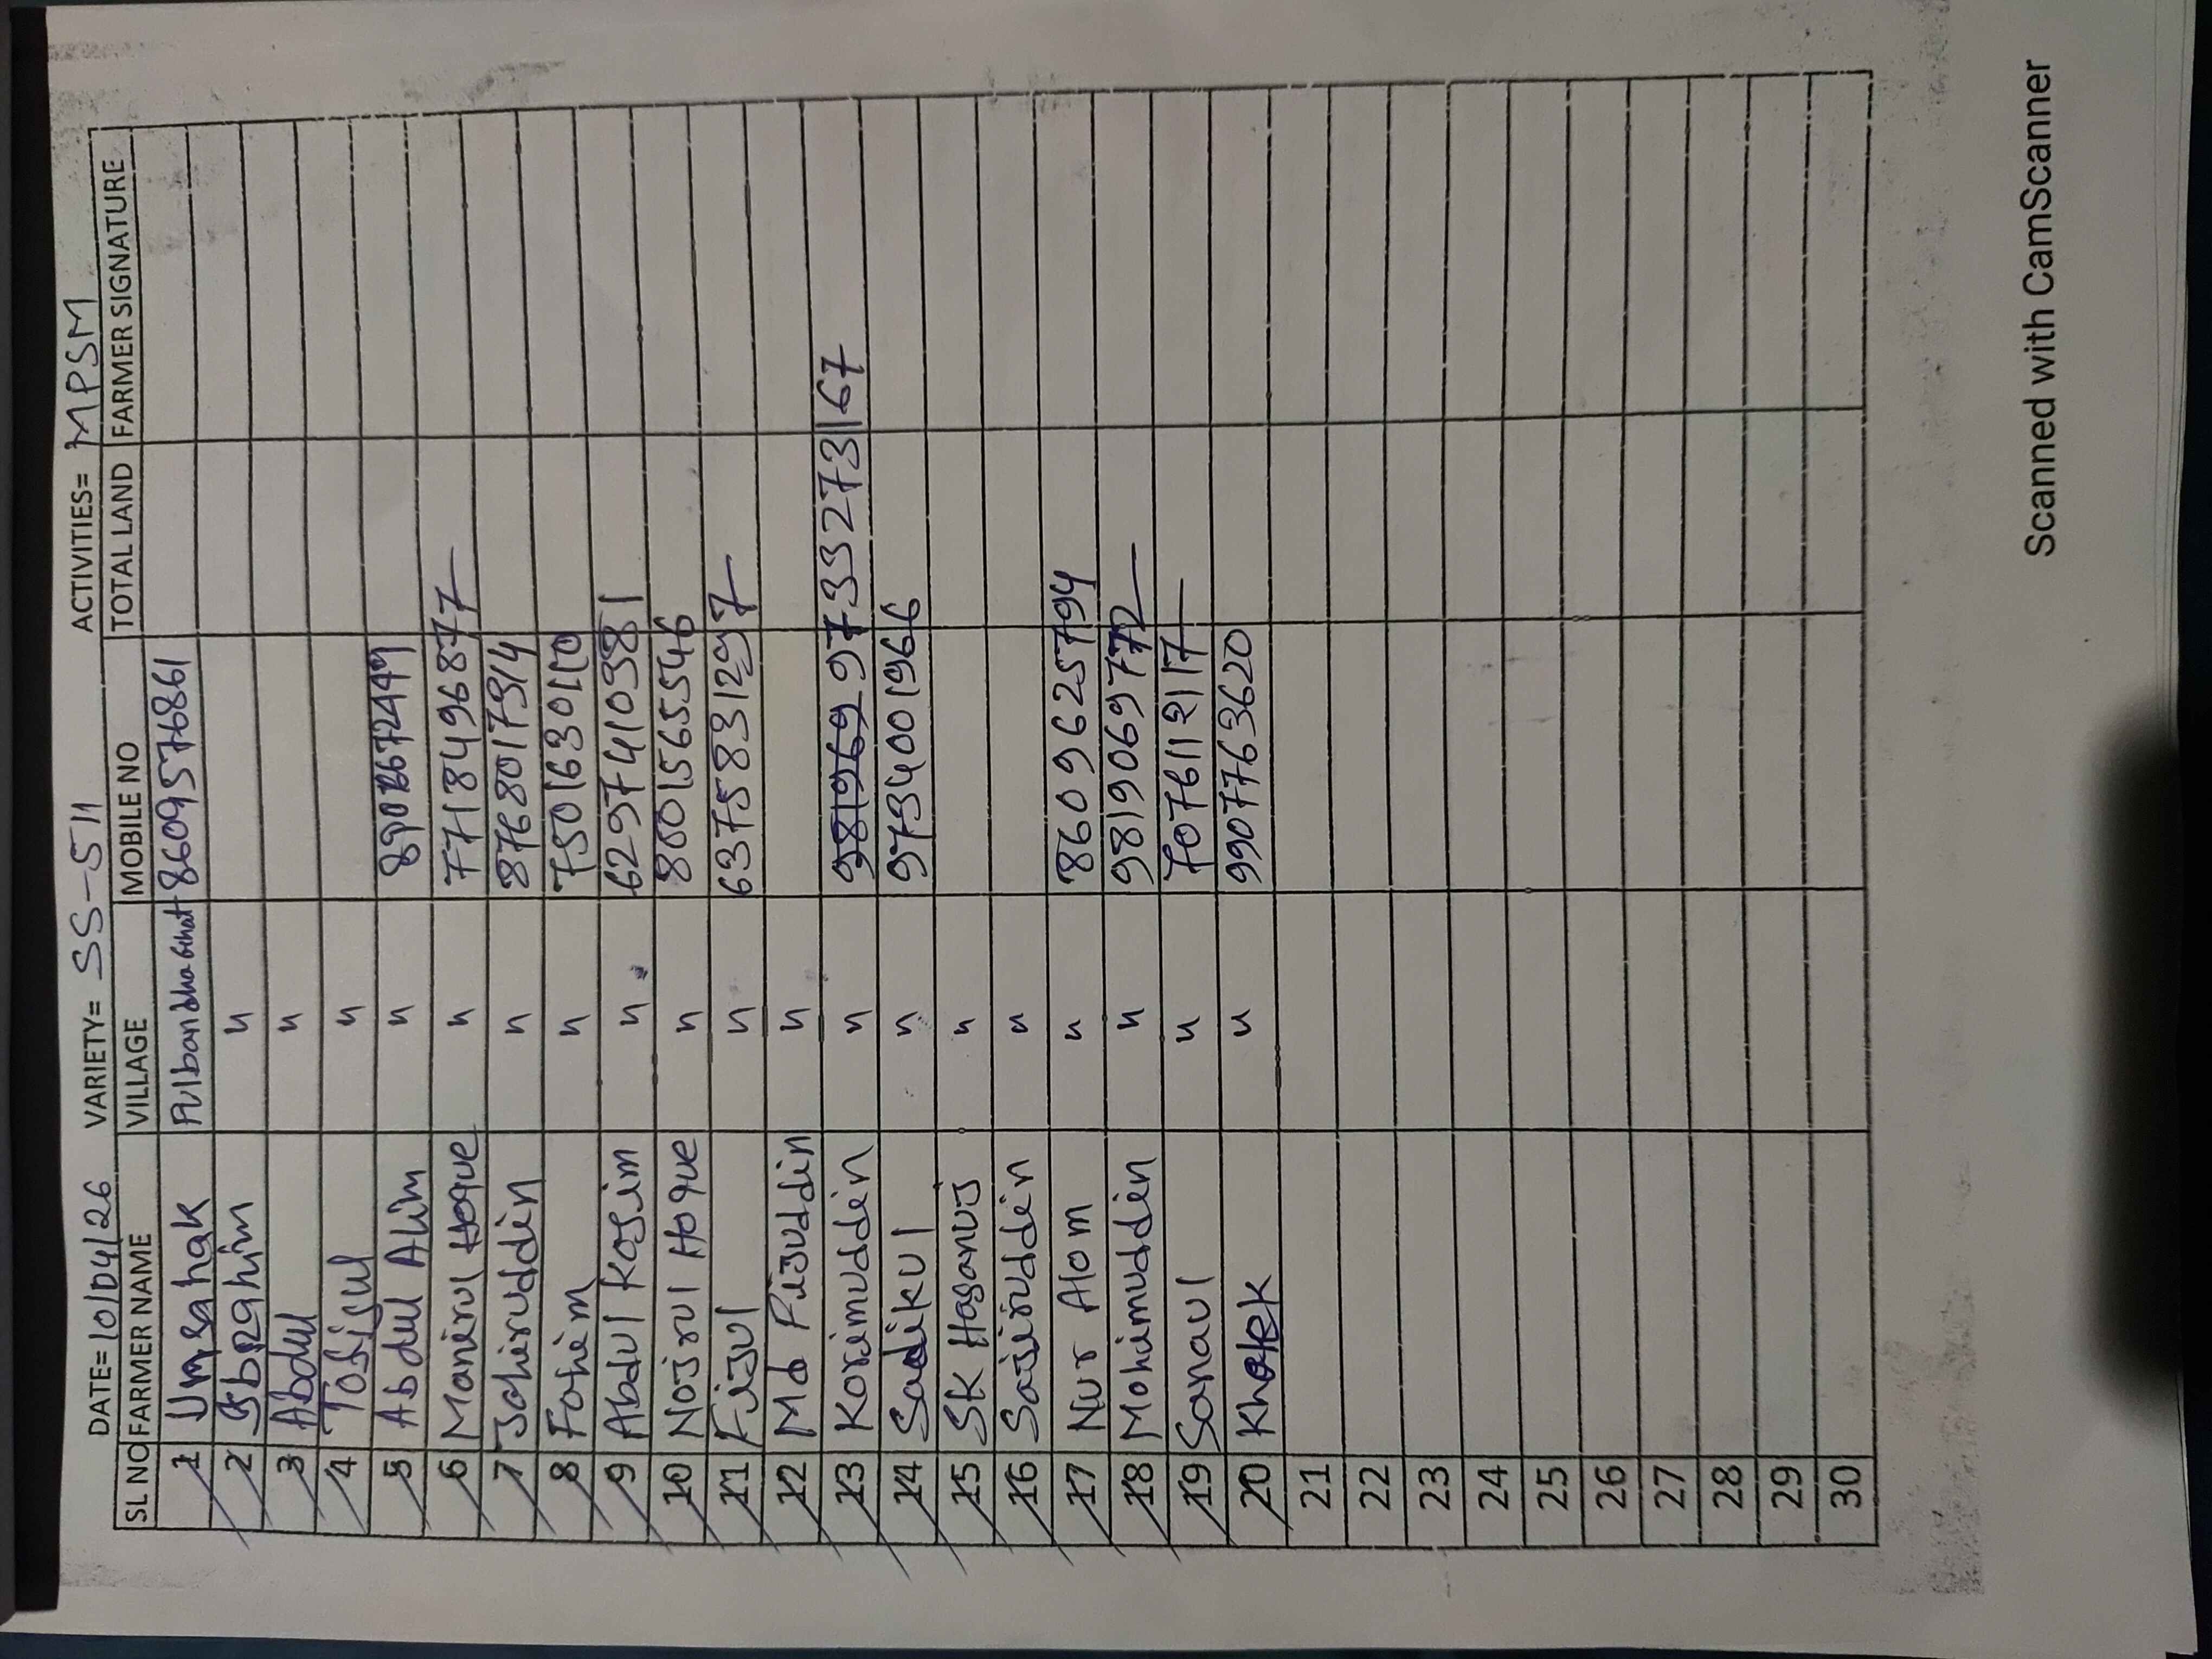 DATE= 10/04/26 VARIETY= SS-511 ACTIVITIES= MPSM
SL NO FARMER NAME VILLAGE MOBILE NO TOTAL LAND FARMER SIGNATURE
1 8609576861
2 Ibrahim "
3 Abdul "
4 "
5 Abdul Alim "
6 Manirul Hoque " 7718496877
7 Jahiruddin " 8768017914
8 Fahim "
9 Abdul Kasim " 6297410981
10 Nojrul Hoque " 8001565546
11 Fijul " 6375831297
12 Md "
13 Korimuddin " 9733273167
14 Sadikul " 9734001966
15 SK Hasanuj "
16 Sajiruddin "
17 Nur Alom " 8609625794
18 Mohimuddin " 9819069772
19 Sanaul " 7076112117
20 Khalek " 9907763620
21
22
23
24
25
26
27
28
29
30
Scanned with CamScanner